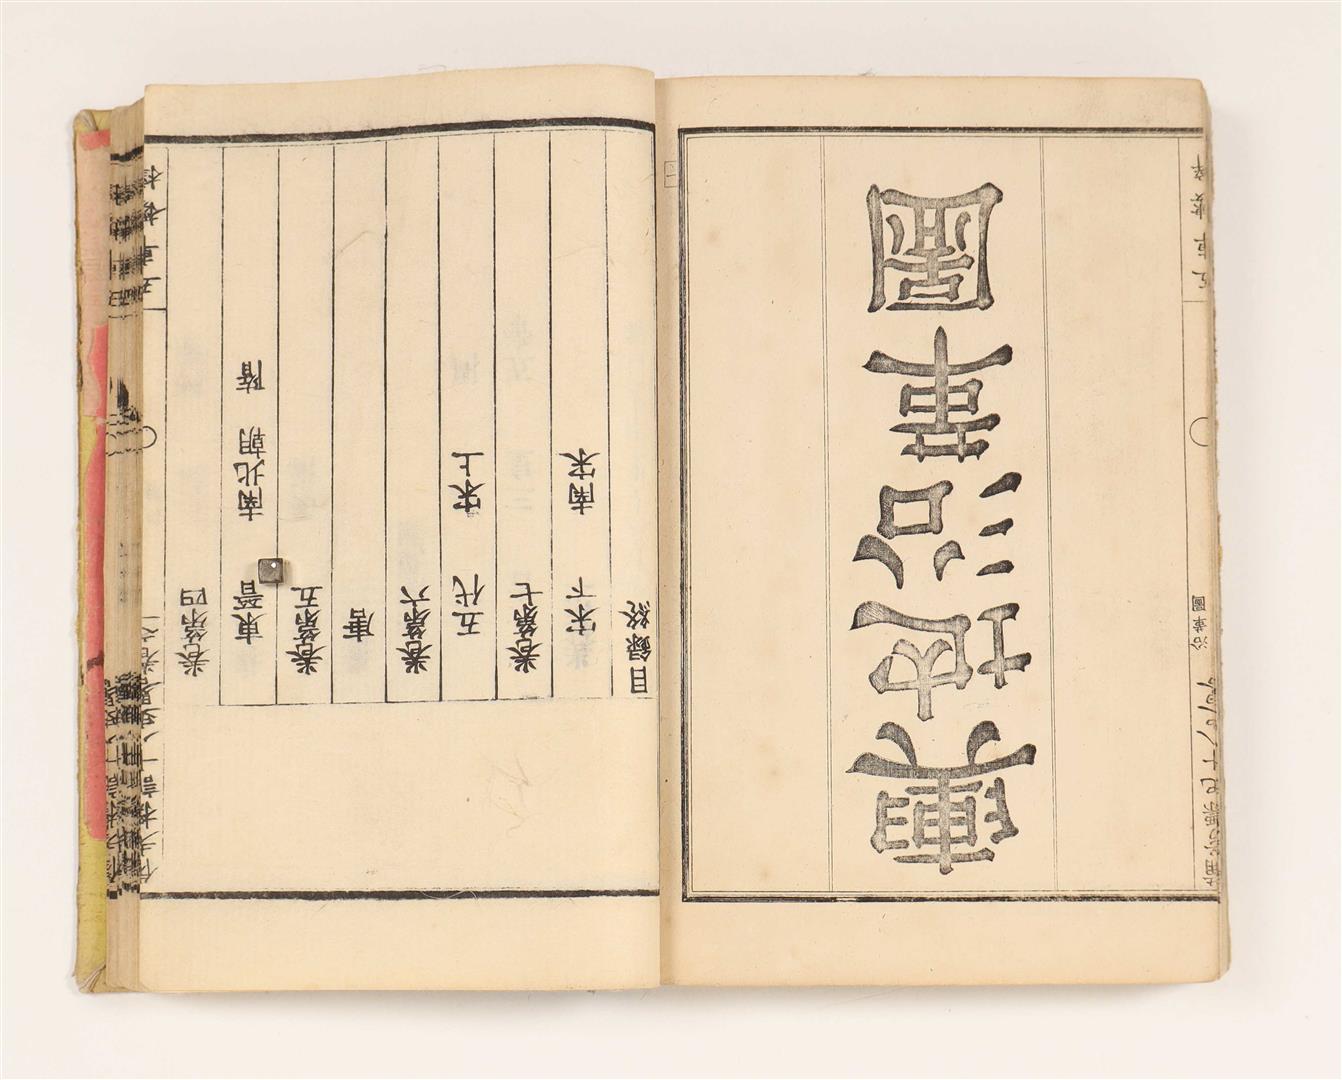 卷第四
東晉 南北朝 隋
卷第五
唐
卷第六
五代 宋上
卷第七
宋下 南宋
目録終
輿地沿革圖
沿革圖